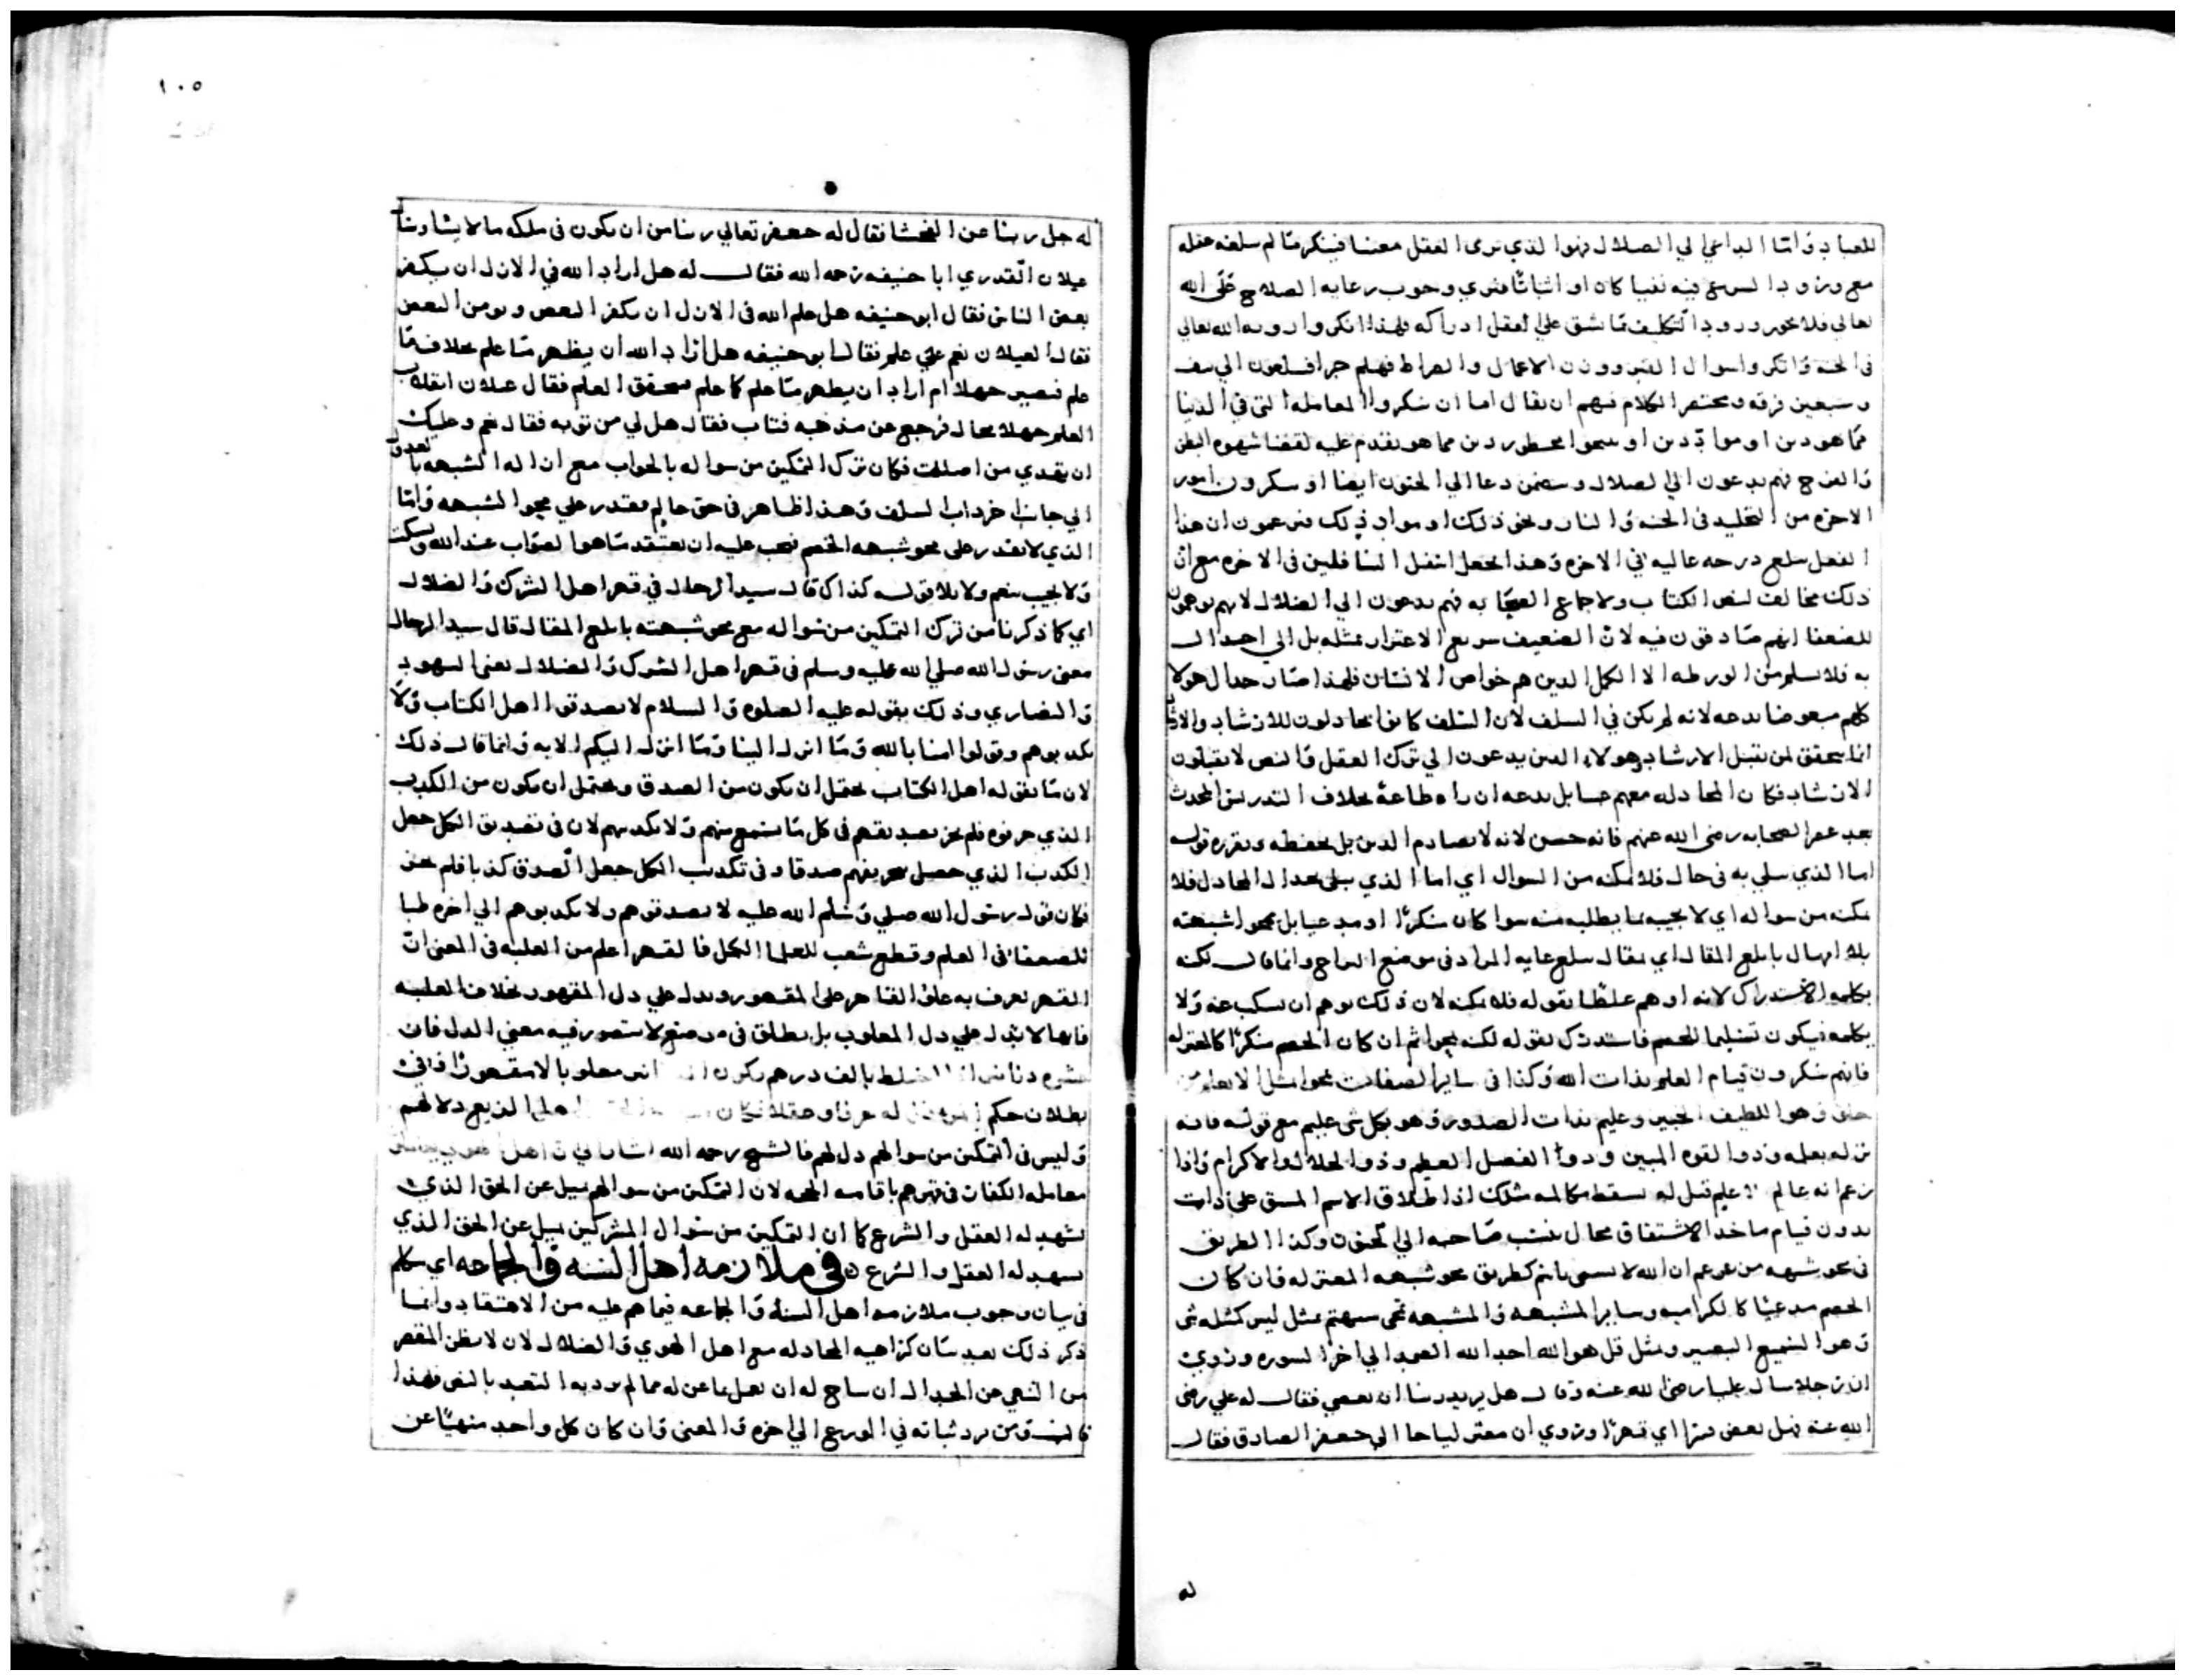 للعباد واما الداعي الي الضلال فهوا لذي يري العقل معنا فينكر ما لم يبلغه عقله
مع ورود الشرع فيه نفيا كان او اثباتا فيري وجوب رعايه الصلاح علي الله
تعالي فلا يجوز ورود التكليف بما شق علي العقل ادراكه فلهذا انكروا رويه الله تعالي
في الجنه وانكروا سوال القبر ووزن الاعمال والصراط فهلم جرا فيبلغون الي نيف
وسبعين فرقه ومختصر الكلام فيهم ان يقال اما ان ينكروا المعامله التي في الدنيا
مما هو دين او مواد دين او يبيحوا محظور دين مما هو يقدم عليه لقضا شهوه البطن
والفرج فهم يدعون الي الضلال ويتضمن دعا الي الجنون ايضا او ينكرون امور
الاخره من التخليد في الجنه والنار ونحو ذلك او مواد ذلك فيزعمون ان هذا
الفعل يبلغ درجه عاليه في الاخره وهذا يجعل اسفل السافلين في الاخره مع ان
ذلك مخالف لنص الكتاب ولاجماع الصحابه فهم يدعون الي الضلال لانهم يوهمون
للضعفا انهم صادقون فيه لان الضعيف سريع الاغترار بمثله بل الي احدال
به فلا يسلم من الورطه الا الكمل الذين هم خواص الانسان فلهذا صار جدال هولا
كلهم مبغوضا بدعه لانه لم يكن في السلف لان السلف كانوا يجادلون للارشاد والارشاد
انما يتحقق لمن يقبل الارشاد وهولاء الذين يدعون الي ترك العقل والنص لا يقبلون
الارشاد فكان المجادله معهم حسا بل بدعه ان راه طاعة بخلاف التدريس المحدث
بعد عصر الصحابه رضي الله عنهم فانه حسن لانه لا يصادم الدين بل يحفظه ويقرره قوله
اما الذي يبلي به في حال فلا يمكنه من السوال اي اما الذي يبلي بجدال المجادل فلا
يمكنه من سواله اي لا يجيبه بما يطلبه منه سوا كان منكرا او مدعيا بل يمحوا شبهته
بلا امهال بابلغ المقال اي بمقال يبلغ غايه المراد في موضع المراح وانما قال لكنه
بكلمه الاستدراك لانه اوهم غلطا بقوله فلا يمكنه لان ذلك يوهم ان يسكت عنه ولا
يكلمه فيكون تسليما للخصم فاستدرك بقوله لكنه يمحوا ثم ان كان الخصم منكرا كالمعتزله
فانهم ينكرون قيام العلم بذات الله وكذا في ساير الصفات يمحوا بمثل الا يعلم من
خلق وهوا للطيف الخبير وعليم بذات الصدور وهو بكل شي عليم مع قوله فانه
نزله بعلمه وذوا القوه المبين وذوا الفضل العظيم وذوا لجلال والاكرام واذا
زعم انه عالم لا علم قيل له سقط مكالمه مثلك اذ اطلاق الاسم المشتق علي ذات
بدون قيام ماخذ الاشتقاق محال ينسب صاحبه الي الجنون وكذا الطريق
في محو شبهه من يزعم ان الله لا يسمي باسم كطريق محو شبهه المعتزله فان كان
الخصم مدعيا كالكراميه وساير المشبهه والمشبهه تمحي شبهتهم بمثل ليس كمثله شي
وهوا لسميع البصير وبمثل قل هوا لله احد الله الصمد الي اخرا لسوره وروي
ان رجلا سال عليا رضي الله عنه وقال هل يريد ربنا ان يعصي فقال له علي رضي
الله عنه فهل يعصي قسرا اي قهرا وروي ان معتزليا جا الي جعفر الصادق فقال
له
١٠٥
له جل ربنا عن الفحشا فقال له جعفر تعالي ربنا من ان يكون في ملكه ما لا يشا وسا
غيلان القدري ابا حنيفه رحمه الله فقال له هل اراد الله في الازل ان يكفر
بعض الناس فقال ابو حنيفه هل علم الله في الازل ان يكفر البعض ويومن البعض
فقال الغيلان نعم علي علم فقال ابو حنيفه هل اراد الله ان يظهر ما علم بخلاف ما
علم فيصير جهلا ام اراد ان يظهر ما علم كما علم فيتحقق العلم فقال غيلان انقلاب
العلم جهلا محال فرجع عن مذهبه فتاب فقال هل لي من توبه فقال نعم وعليك
ان تهدي من اضللت فكان ترك التمكين من سواله بالجواب مع ازاله الشبهه با
الي جانب اخر داب السلف وهذا ظاهر في حق عالم مقتدر علي محوا لشبهه واما
الذي لا يقدر علي محو شبهه الخصم فيجب عليه ان يعتقد ما هوا لصواب عند الله ويسكت
ولا يجيب بنعم ولا بلا قوله كذاك قال سيد الرجال في قهر اهل الشرك والضلال
اي كما ذكرنا من ترك التمكين من سواله مع محو شبهته بابلغ المقال قال سيد الرجال
يعني رسول الله صلي الله عليه وسلم في قهر اهل الشرك والضلال يعني اليهود
والنصاري وذلك بقوله عليه الصلوه والسلام لا تصدقوا اهل الكتاب ولا
تكذبوهم وقولوا امنا بالله وما انزل الينا وما انزل اليكم الايه وانما قال ذلك
لان ما يقوله اهل الكتاب يحتمل ان يكون من الصدق ويحتمل ان يكون من الكذب
الذي حرفوه فلم يجز تصديقهم في كل ما يسمع منهم ولا تكذيبهم لان في تصديق الكل جعل
الكذب الذي حصل بتحريفهم صدقا وفي تكذيب الكل جعل الصدق كذبا فلم يجز
فكان قول رسول الله صلي وسلم الله عليه لا تصدقوهم ولا تكذبوهم الي اخره طبا
للضعفا في العلم وقطع شعب للعلما الكمل فالقهر اعلم من الغلبه في المعني ان
القهر يعرف به علو القاهر علي المقهور ويدل علي ذل المقهور بخلاف الغلبه
فانها لا تدل علي ذل المغلوب بل يطلق في موضع لا يتصور فيه معني الذل فان
عشره دنانير اذا اختلط بالف درهم يكون مغلوبا لا مقهورا في
بطلان حكم
وليس في التمكين من سوالهم ذل لهم فالشيخ رحمه الله
معامله الكفار في قهرهم باقامه الحجه لان التمكين من سوالهم ميل عن الحق الذي
يشهد له العقل والشرع كما ان التمكين من سوال المشركين ميل عن الحق الذي
يشهد له العقل والشرع في ملازمه اهل السنه والجماعه اي تكلم
في بيان وجوب ملازمه اهل السنه والجماعه فيما هم عليه من الاعتقاد وانما
ذكر ذلك بعد بيان كراهيه المجادله مع اهل الهوي والضلال لان لا يظن المقصر
من النهي عن الجدال ان يباح له ان يعمل بما عن له مما لم يرد به التعبد بالنص فلهذا
قال ومن يرد ثباته في الورع الي اخره والمعني وان كان كل واحد منهيا عن